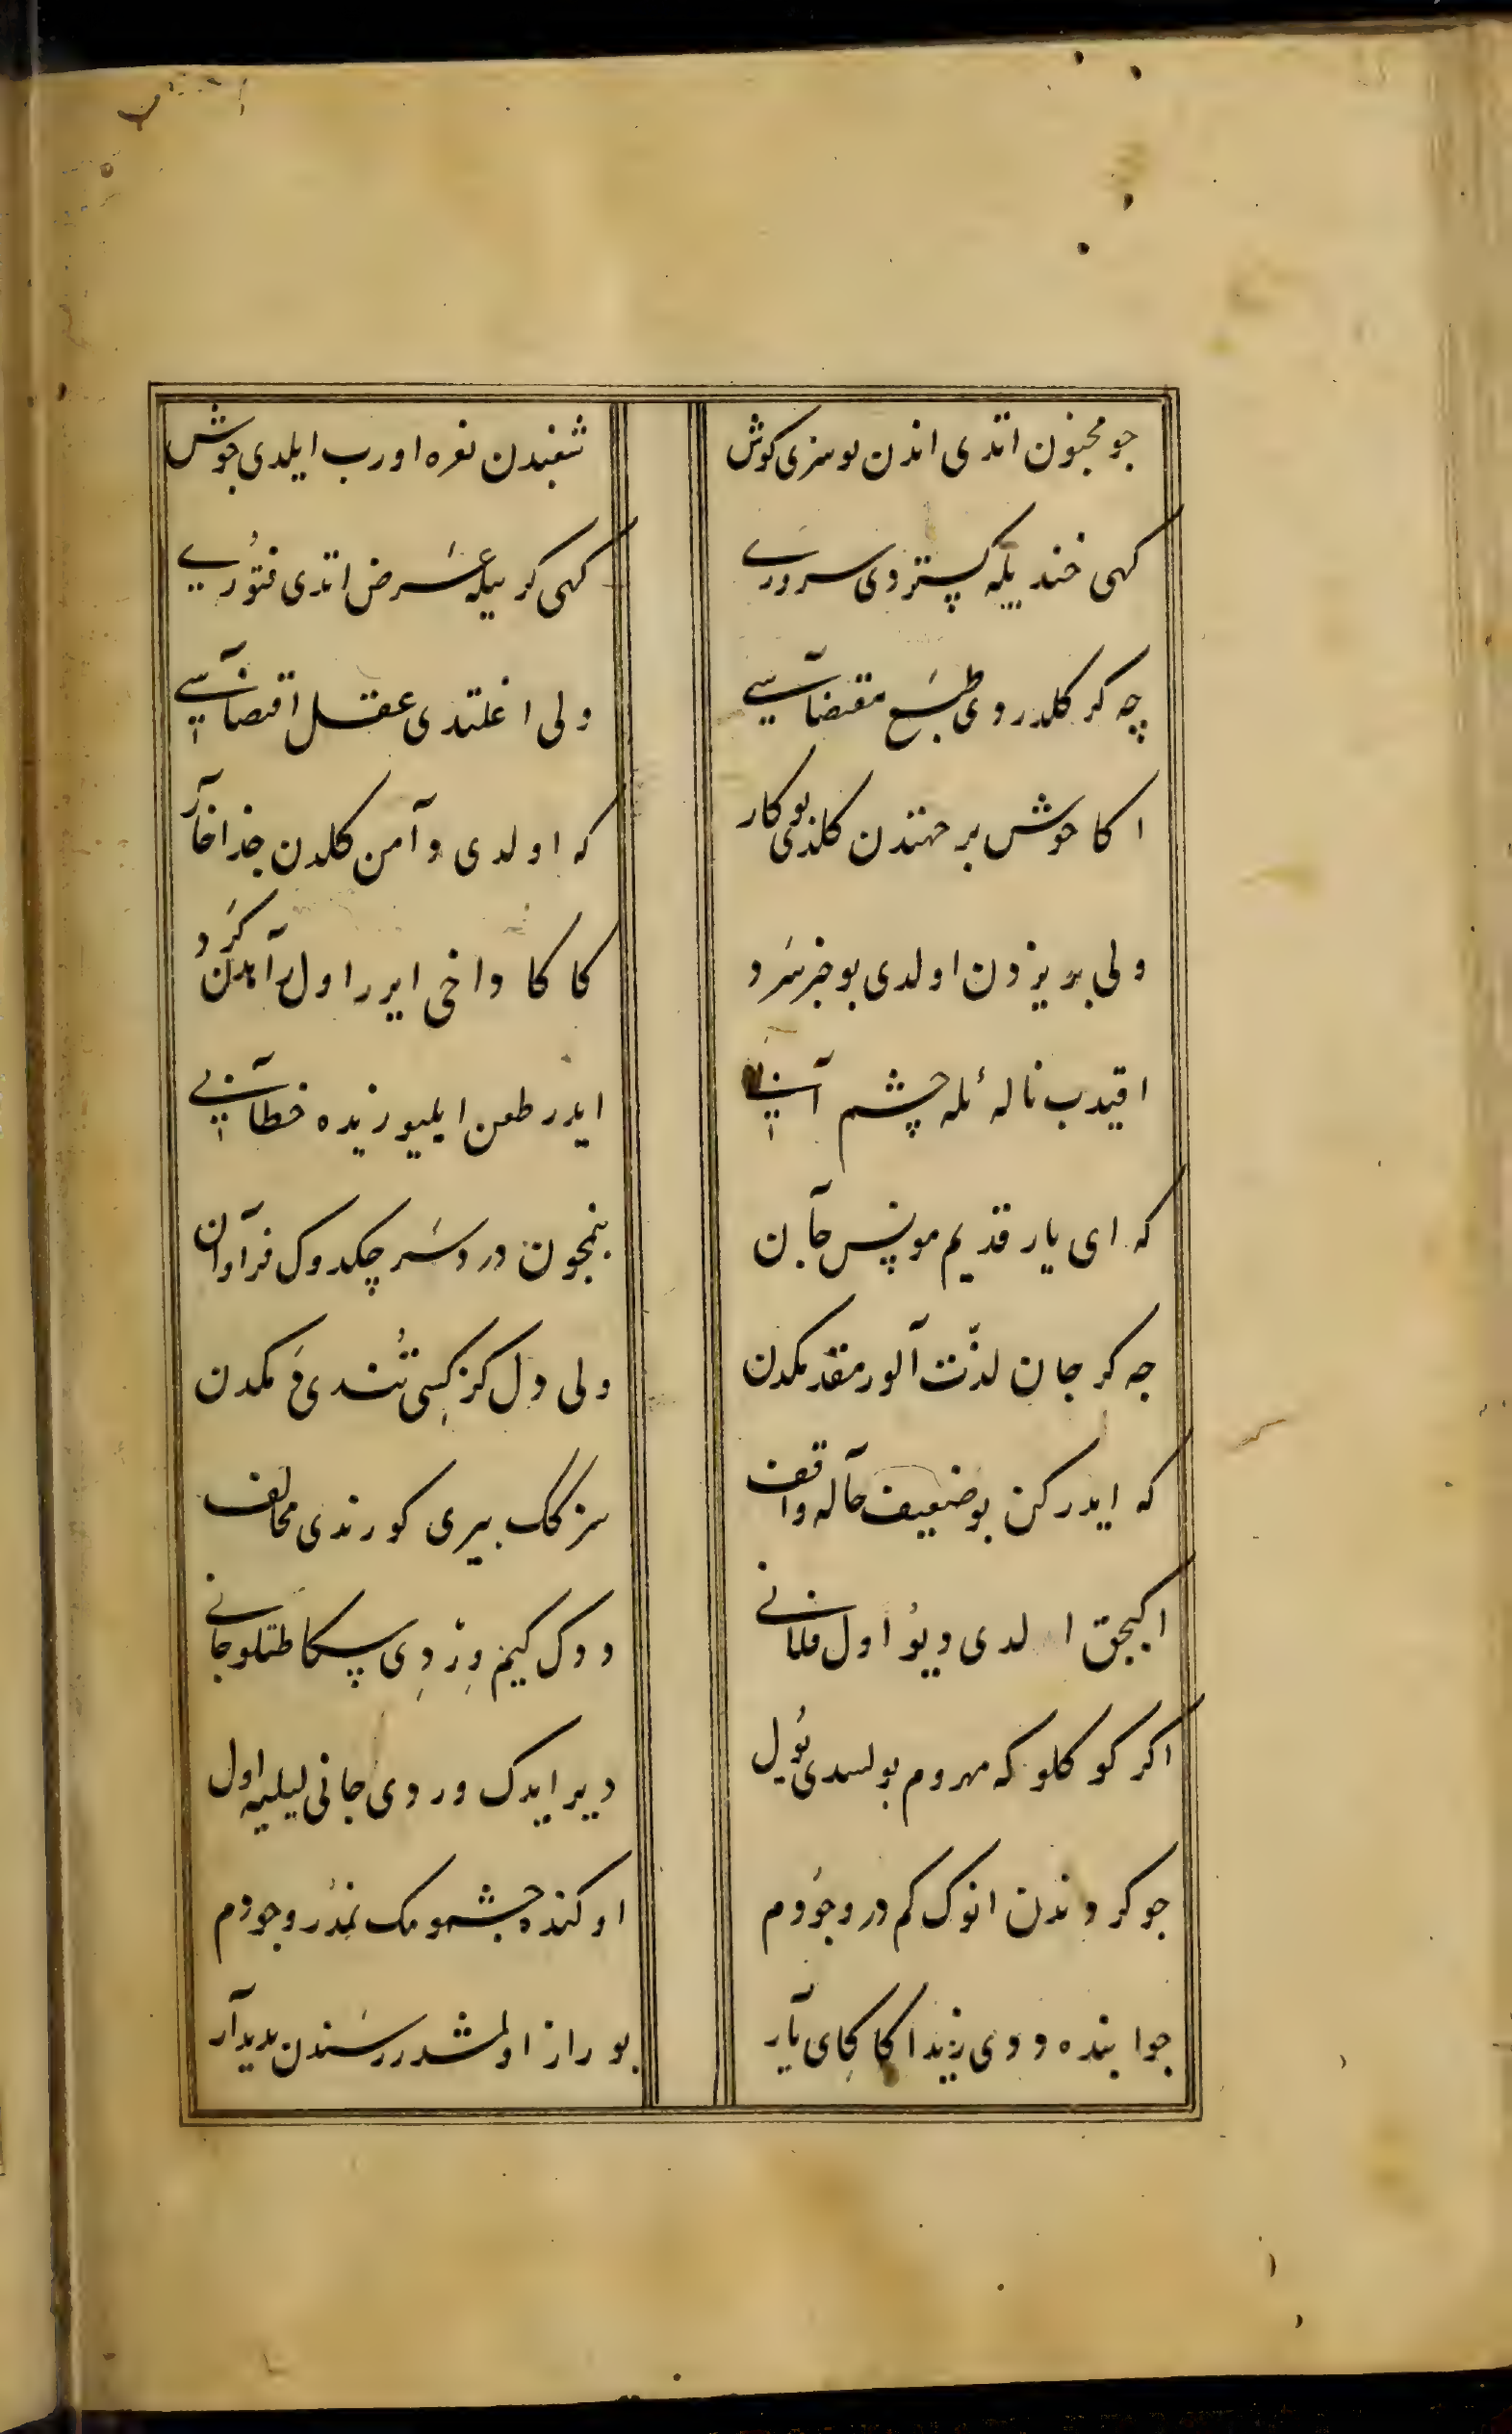 جو مجنون اتدی اندن بو سزی کوش
شغبدن نعره اورب ایلدی جوش
کهی خندیله کستردی سروری
کهی کریله عرض اتدی فتوری
چه کر کلدردی طبع مقتضاسی
ولی اغلتدی عقل اقتضاسی
اکا خوش بر جهتدن کلدی بو کار
که اولدی دامن کلدن جدا خار
ولی بر یزدن اولدی بو خبر سرد
کاکا داخی ایرر اول راهدن کرد
اقیدب ناله ئله چشم آبی
ایدر طعن ایلیو زیده خطابی
که ای یار قدیم مونس جان
بنمجون درد سر چکدوک فراوان
جه کر جان لذت آلور مقدمکدن
ولی دل کز کسی تندی دمکدن
که ایدرکن بو ضعیف حاله واقف
سزکک بیری کورندی مخالف
اکیجق لدی دیو اول فلانی
ددک کیم وردی سکا طتلو جانی
اکر کوکلوکه مهروم بولسدی یول
دیر ایدک وردی جانی لیلیه اول
جو کردندن انوک کم در وجودم
اوکنده جشمومک نمدر وجودم
جوابنده ددی زید اکا کای یار
بو راز اولمشدر سندن بدیدار